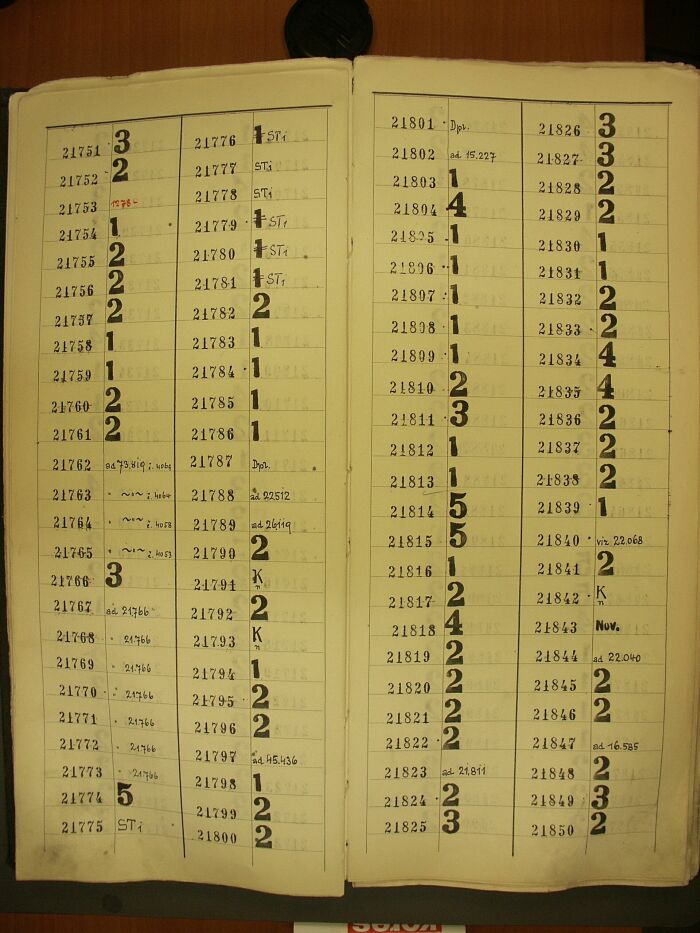 21751 3
21752 2
21753 1878-
21754 1
21755 2
21756 2
21757 2
21758 1
21759 1
21760 2
21761 2
21762 ad 73.819 i. 4064
21763 " ~"~ i. 4064
21764 " ~"~ i. 4058
21765 " ~"~ i. 4053
21766 3
21767 ad 21766
21768 " 21.766
21769 " 21.766
21770 " 21.766
21771 " 21.766
21772 " 21.766
21773 " 21.766
21774 5
21775 STi
21776 1 STi
21777 STi
21778 STi
21779 1 STi
21780 1 STi
21781 1 STi
21782 2
21783 1
21784 1
21785 1
21786 1
21787 Dpl.
21788 ad 22512
21789 ad 26119
21790 2
21791 K n
21792 2
21793 K n
21794 1
21795 2
21796 2
21797 ad 45.436
21798 1
21799 2
21800 2
21801 Dpl.
21802 ad 15.227
21803 1
21804 4
21805 1
21806 1
21807 1
21808 1
21809 1
21810 2
21811 3
21812 1
21813 1
21814 5
21815 5
21816 1
21817 2
21818 4
21819 2
21820 2
21821 2
21822 2
21823 ad 21.811
21824 2
21825 3
21826 3
21827 3
21828 2
21829 2
21830 1
21831 1
21832 2
21833 2
21834 4
21835 4
21836 2
21837 2
21838 2
21839 1
21840 viz 22.068
21841 2
21842 K n
21843 Nov.
21844 ad 22.040
21845 2
21846 2
21847 ad 16.585
21848 2
21849 3
21850 2